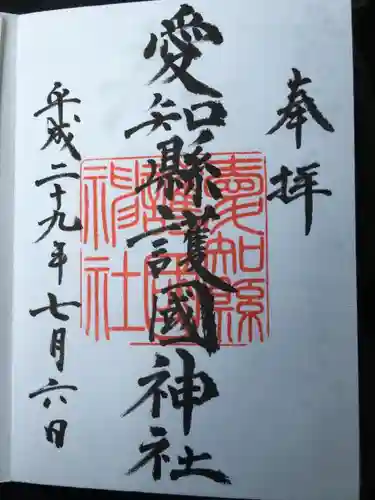 奉拝
愛知縣護國神社
愛知縣
護國
神社
平成二十九年七月六日